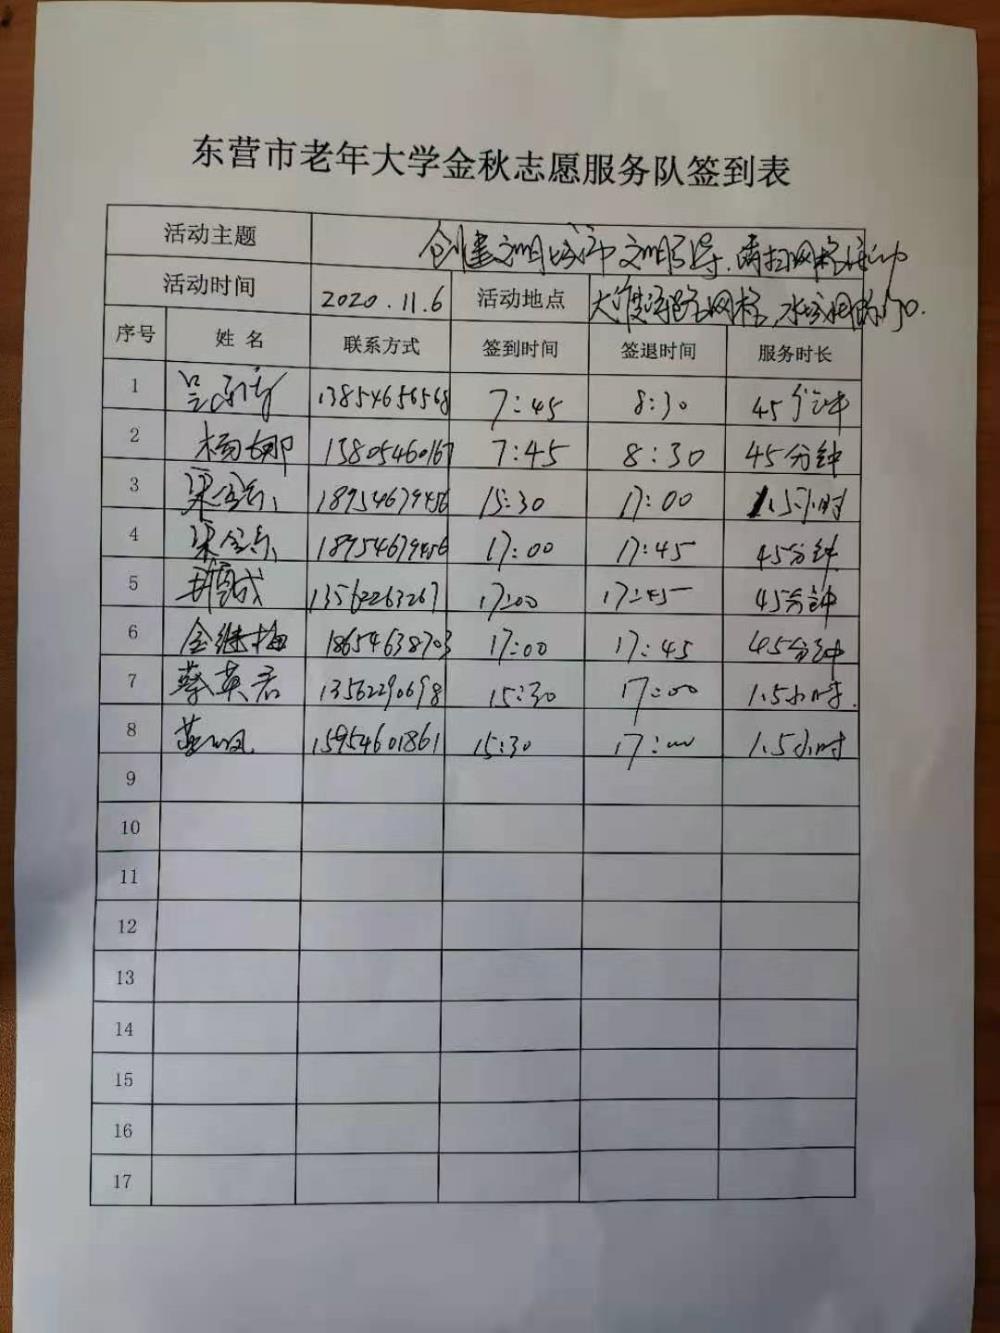 东营市老年大学金秋志愿服务队签到表
活动主题 创建文明城市 文明引导、清扫网格
活动时间 2020.11.6 活动地点 网格
序号 姓名 联系方式 签到时间 签退时间 服务时长
1 13854656568 7:45 8:30 45分钟
2 杨娜 13805460167 7:45 8:30 45分钟
3 18954679456 15:30 17:00 1.5小时
4 18954679456 17:00 17:45 45分钟
5 13562263267 17:00 17:45 45分钟
6 金继梅 18654638703 17:00 17:45 45分钟
7 蔡英君 13562290698 15:30 17:00 1.5小时.
8 15954601861 15:30 17:00 1.5小时
9
10
11
12
13
14
15
16
17